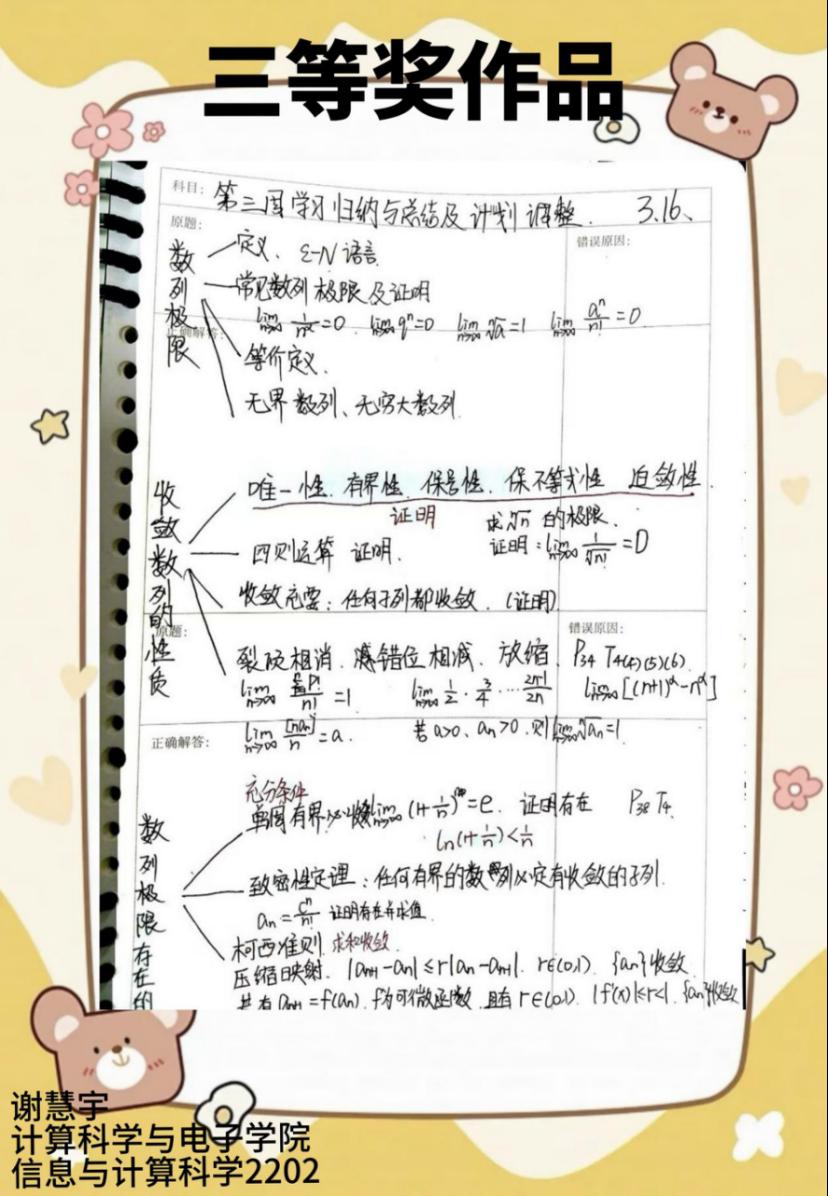 三等奖作品
科目: 第三周学习归纳与总结及计划调整. 3.16、
原题:
错误原因:
数列极限
定义、ε-N语言
常见数列极限及证明
lim n→∞ 1/n^α=0 lim n→∞ q^n=0 lim n→∞ ⁿ√a=1 lim n→∞ a^n/n!=0
正确解答:
等价定义、
无界数列、无穷大数列
收敛数列的性质
唯一性、有界性、保号性、保不等式性 迫敛性
证明 求ⁿ√n 的极限、
四则运算 证明. 证明: lim n→∞ 1/ⁿ√n! =0
收敛充要: 任何子列都收敛.（证明）
原题:
错误原因:
裂项相消、错位相减、放缩、P34 T4(4)(5)(6)
lim n→∞ =1 lim n→∞ 1/2·3/4·…·2n-1/2n lim n→∞ [(n+1)^α-n^α]
lim n→∞ [na_n]/n=a. 若a>0、a_n>0.则lim n→∞ ⁿ√a_n=1
正确解答:
充分条件
单调有界必收敛 lim n→∞ (1+1/n)^n=e. 证明存在 P38 T4.
ln(1+1/n)<1/n
数列极限存在的
致密性定理: 任何有界的数列必定有收敛的子列.
a_n=c^n/n! 证明存在并求值
柯西准则 求和收敛
压缩映射. |a_n+1-a_n|≤r|a_n-a_n-1|. r∈(0,1). {a_n}收敛
若有a_n+1=f(a_n). f为可微函数 且有r∈(0,1). |f'(x)|≤r<1. {a_n}收敛
谢慧宇
计算科学与电子学院
信息与计算科学2202